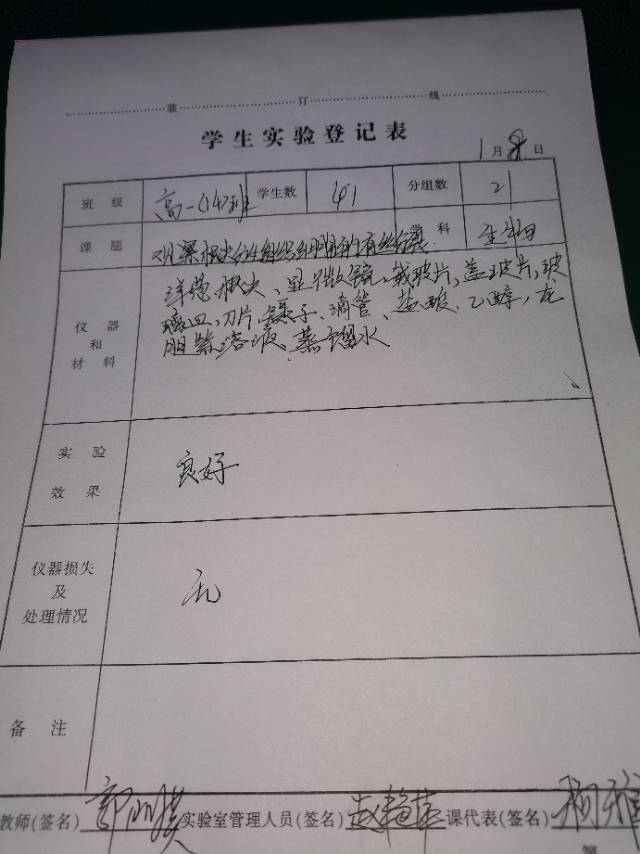 装 订 线
学生实验登记表
1月8日
班 级 高一(14)班 学生数 41 分组数 21
课 题 观察根尖分生组织细胞的有丝分裂 学 科 生物
仪 器 和 材 料
洋葱根尖、显微镜、载玻片、盖玻片、玻
璃皿、刀片、镊子、滴管、盐酸、乙醇、龙
胆紫溶液、蒸馏水
实 验 效 果 良好
仪器损失
及
处理情况 无
备 注
教师(签名) 实验室管理人员(签名) 课代表(签名)
第